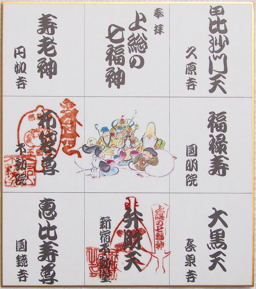 毘沙門天
久原寺
奉拝
上総の
七福神
寿老神
円如寺
福禄寿
圓明院
布袋尊
不動院
大黒天
長泉寺
弁財天
新宿不動堂
恵比寿尊
圓鏡寺